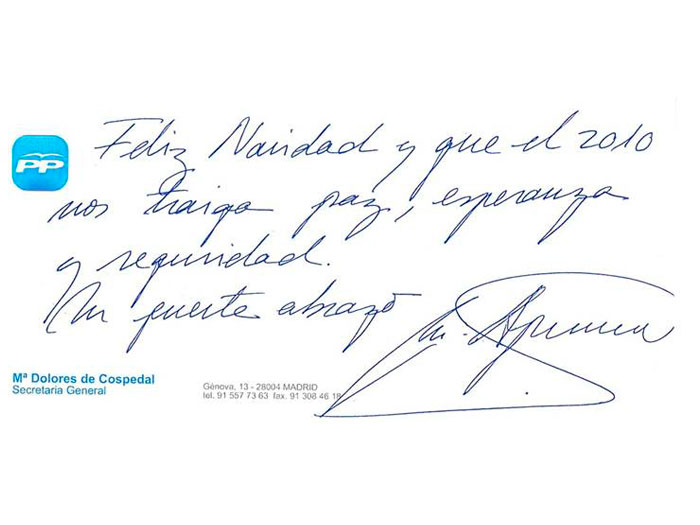 PP
Feliz Navidad y que el 2010
nos traiga paz, esperanza
y seguridad.
Un fuerte abrazo
Mª Dolores de Cospedal
Secretaria General
Génova, 13 - 28004 MADRID
tel. 91 557 73 63 fax. 91 308 46 18